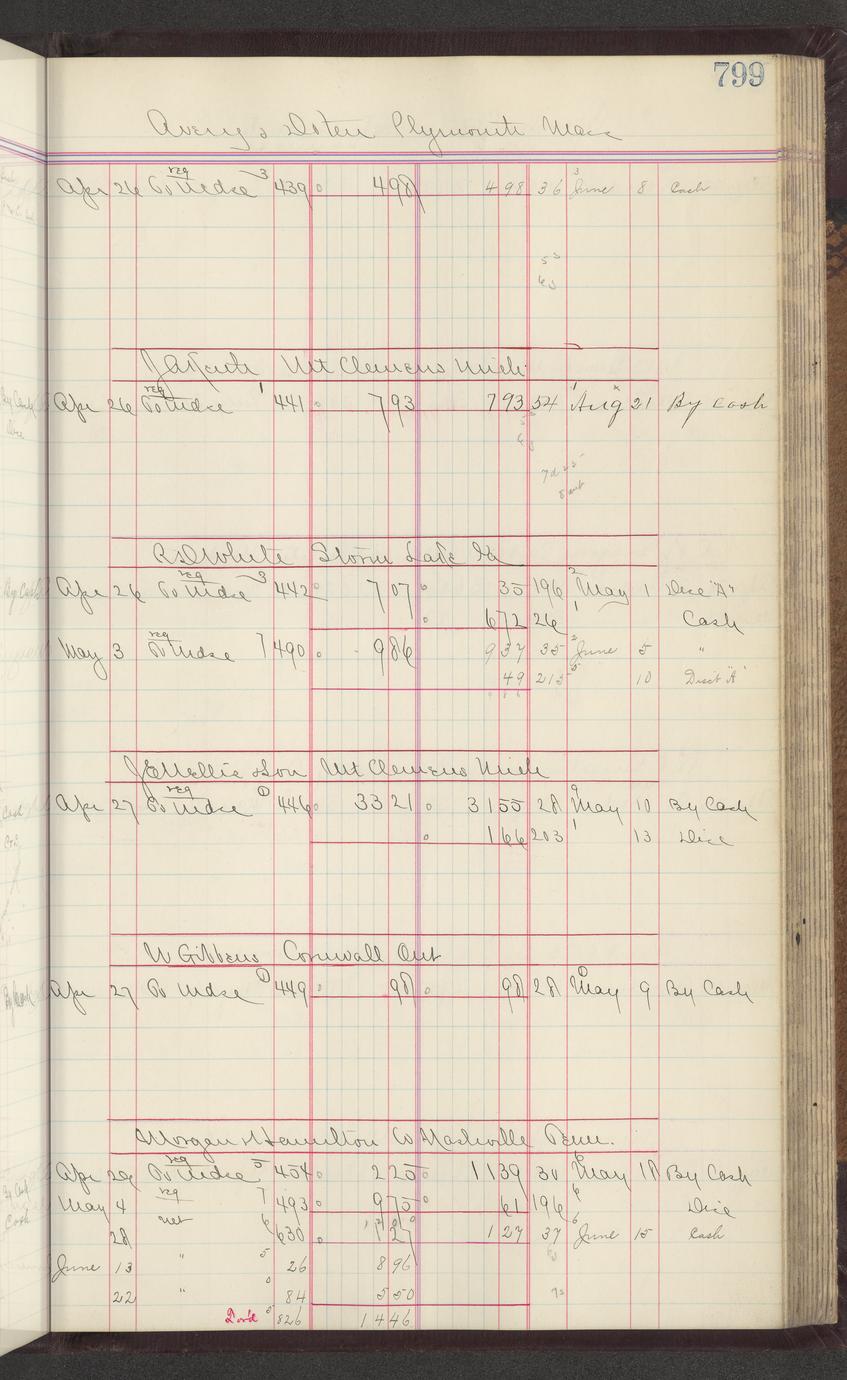 799
Avery & Doten Plymouth Mass
Apr 26 To Mdse reg 3 439 4 98 4 98 36 3 June 8 Cash
Mt Clemens Mich
Apr 26 To Mdse reg 1 441 7 93 7 93 54 1 Aug 21 By Cash
R D White Storm Lake Ia
Apr 26 To Mdse reg 3 442 7 07 35 196 2 May 1 Disc "A"
6 72 26 1 Cash
May 3 To Mdse reg 7 490 9 86 9 37 35 June 5 "
49 213 10 Disct "A"
J E Nellis & Son Mt Clemens Mich
Apr 27 To Mdse reg 1 446 33 21 31 55 28 9 May 10 By Cash
1 66 203 1 13 Disc
W Gibbens Cornwall Ont
Apr 27 To Mdse 1 449 98 98 28 0 May 9 By Cash
Morgan & Hamilton Co Nashville Tenn.
Apr 29 To Mdse reg 5 454 2 25 11 39 30 May 18 By Cash
May 4 reg 7 493 9 75 61 196 6 Disc
28 net 6 630 1 27 1 27 37 June 15 Cash
June 13 " 5 26 8 96
22 " 0 84 5 50
826 14 46